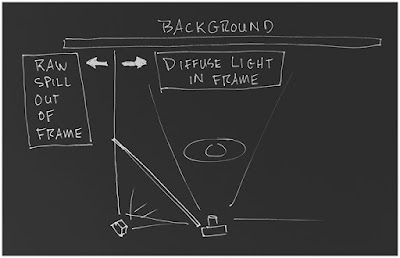 BACKGROUND
RAW
SPILL
OUT
OF
FRAME
DIFFUSE LIGHT
IN FRAME